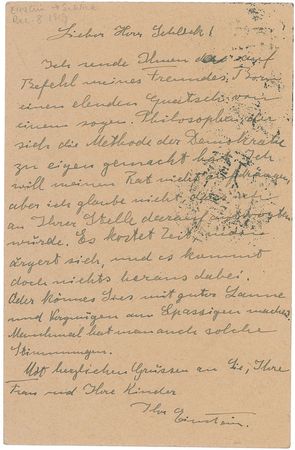 Einstein → Schlick
Dec. 8 1919
Lieber Herr Schlick!
Ich sende Ihnen da auf
Befehl meines Freundes Born
einen elenden Quatsch von
einem sogen. Philosophen, der
sich die Methode der Demokratie
zu eigen gemacht hat. Ich
will meinen Rat nicht
aber ich glaube nicht, dass ich
an Ihrer Stelle darauf antworten
würde. Es kostet Zeit, man
ärgert sich, und es kommt
doch nichts heraus dabei.
Oder können Sie's mit guter Laune
und Vergnügen am Spassigen machen.
Manchmal hat man auch solche
Stimmungen.
Mit herzlichen Grüssen an Sie, Ihre
Frau und Ihre Kinder
Ihr Einstein.